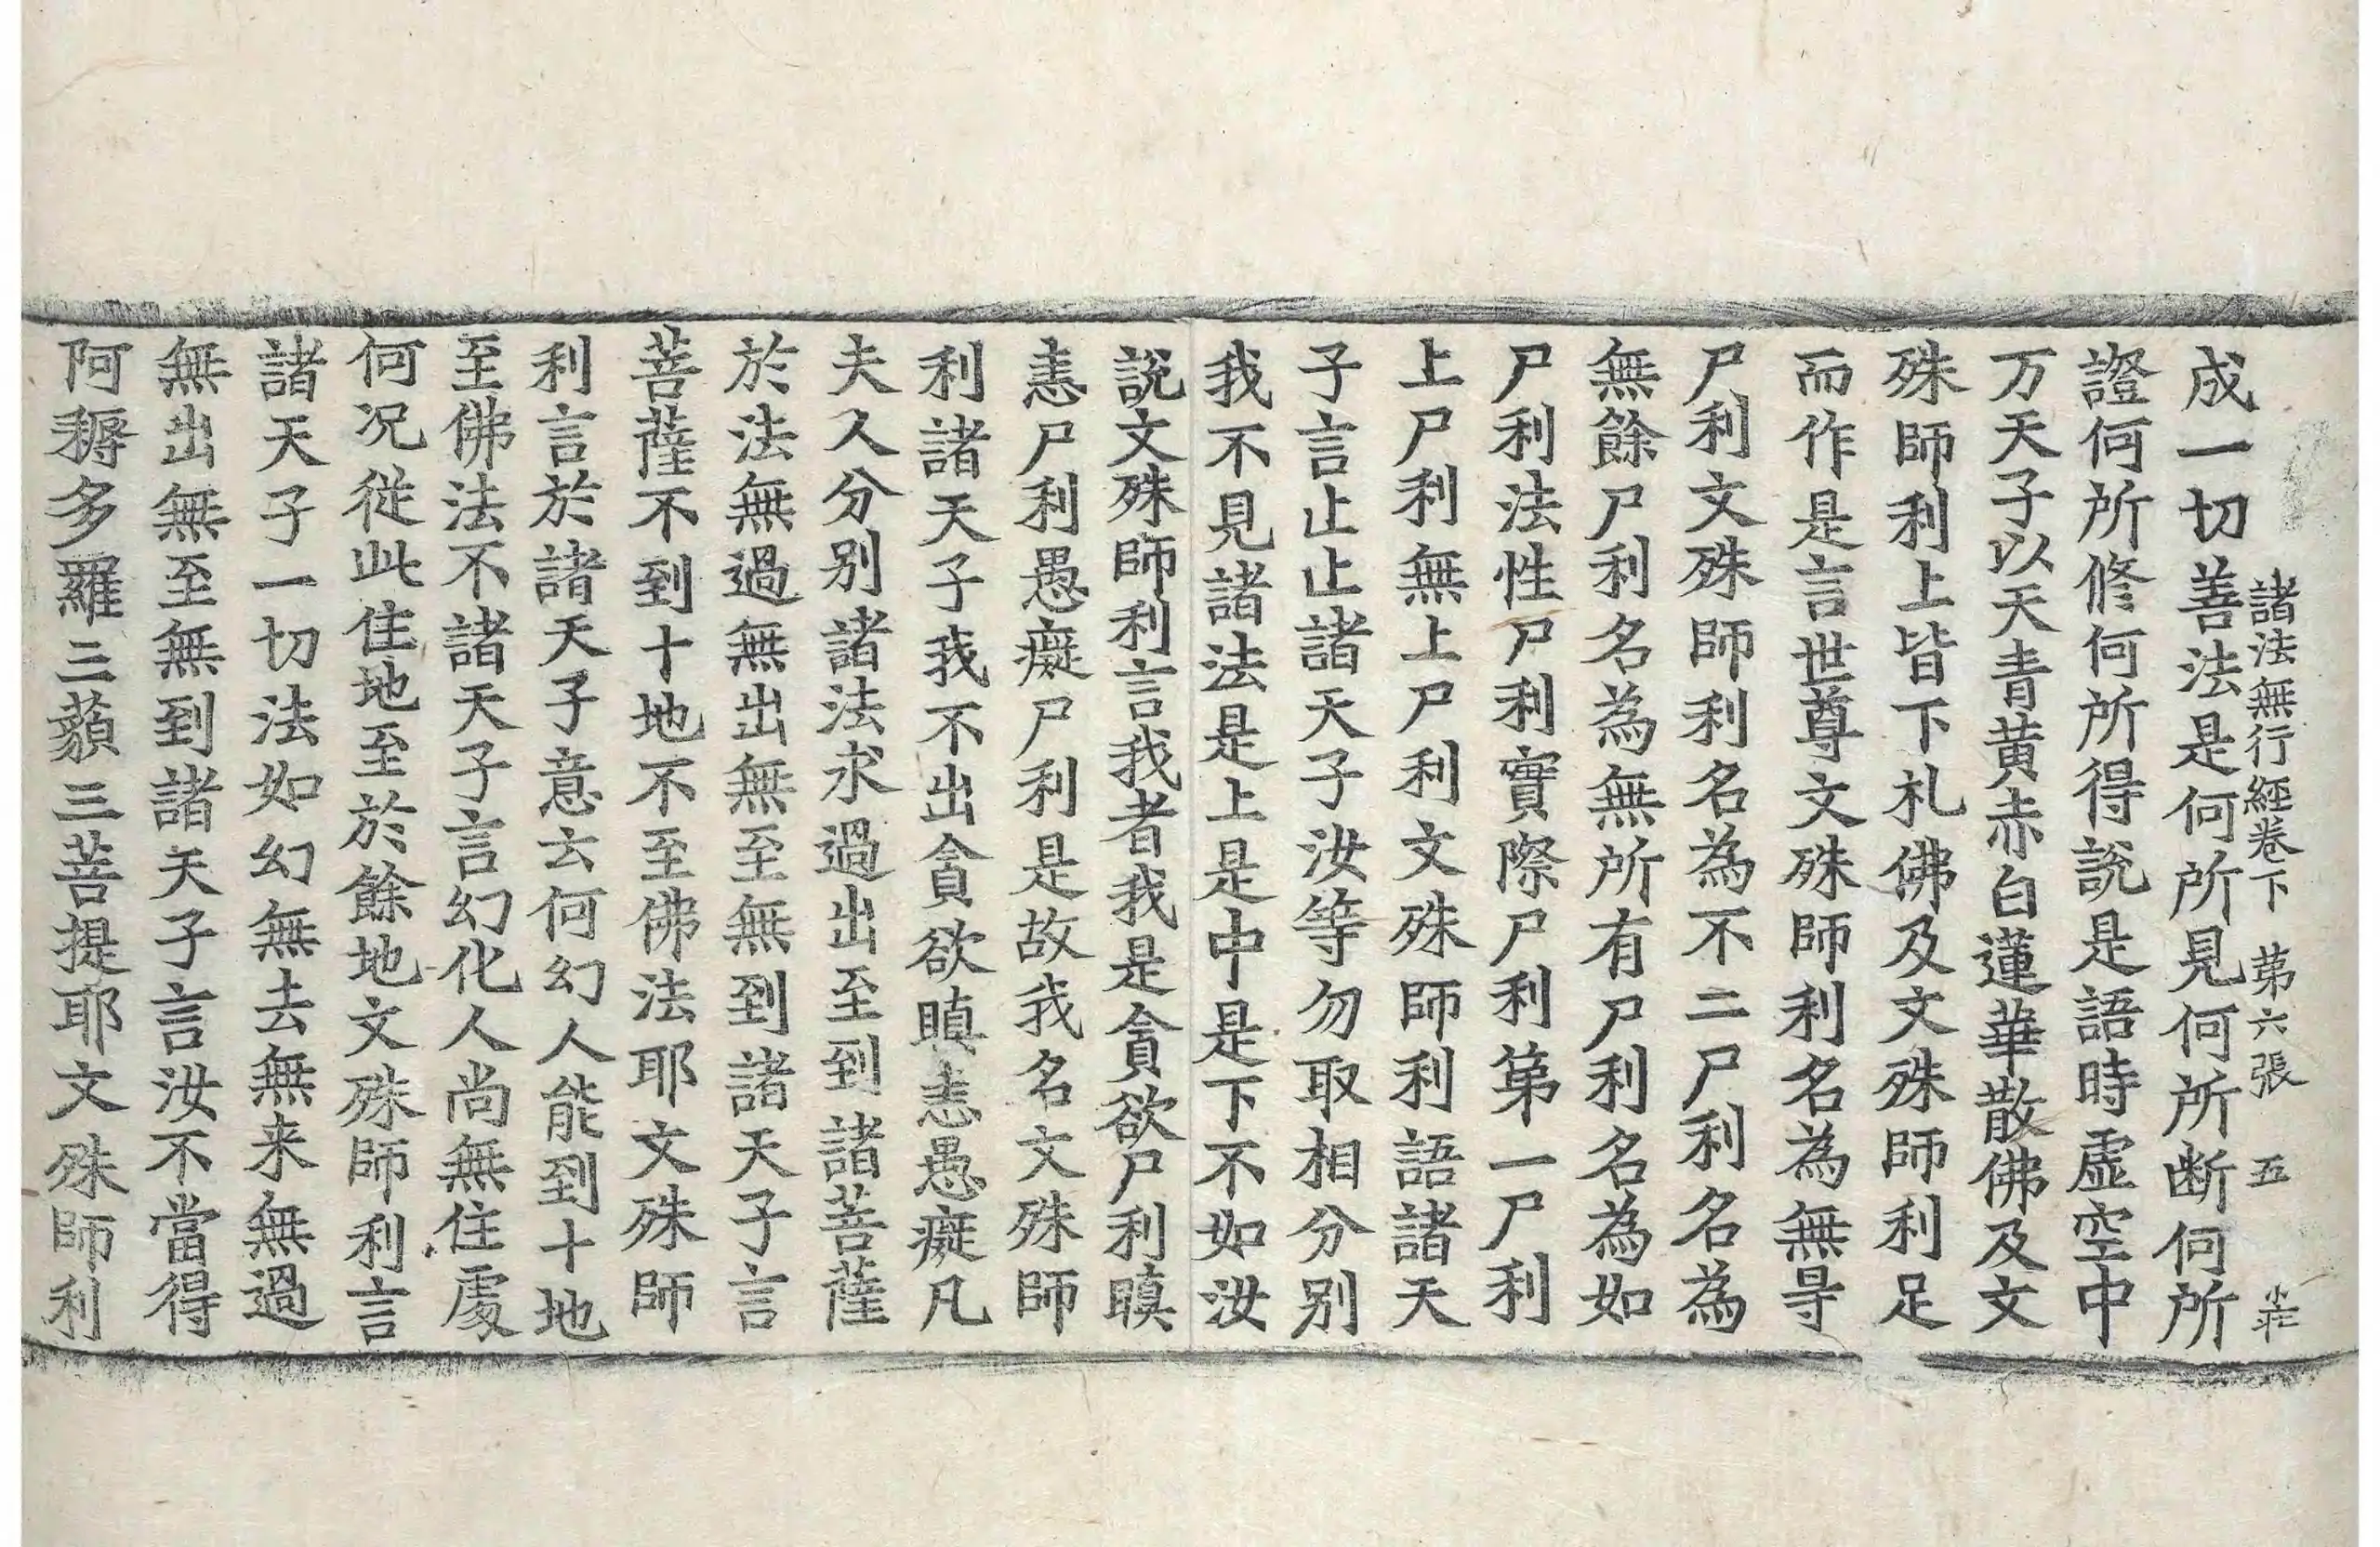 諸法無行經卷下 第六張 五
成一切善法是何所見何所断何所
證何所修何所得說是語時虛空中
万天子以天青黄赤白蓮華散佛及文
殊師利上皆下札佛及文殊師利足
而作是言世尊文殊師利名為無㝵
尸利文殊師利名為不二尸利名為
無餘尸利名為無所有尸利名為如
尸利法性尸利實際尸利第一尸利
上尸利無上尸利文殊師利語諸天
子言止止諸天子汝等勿取相分別
我不見諸法是上是中是下不如汝
說文殊師利言我者我是貪欲尸利瞋
恚尸利愚癡尸利是故我名文殊師
利諸天子我不出貪欲瞋恚愚癡凡
夫人分別諸法求過出至到諸菩薩
於法無過無出無至無到諸天子言
菩薩不到十地不至佛法耶文殊師
利言於諸天子意云何幻人能到十地
至佛法不諸天子言幻化人尚無住處
何况從此住地至於餘地文殊師利言
諸天子一切法如幻無去無来無過
無出無至無到諸天子言汝不當得
阿耨多羅三藐三菩提耶文殊師利